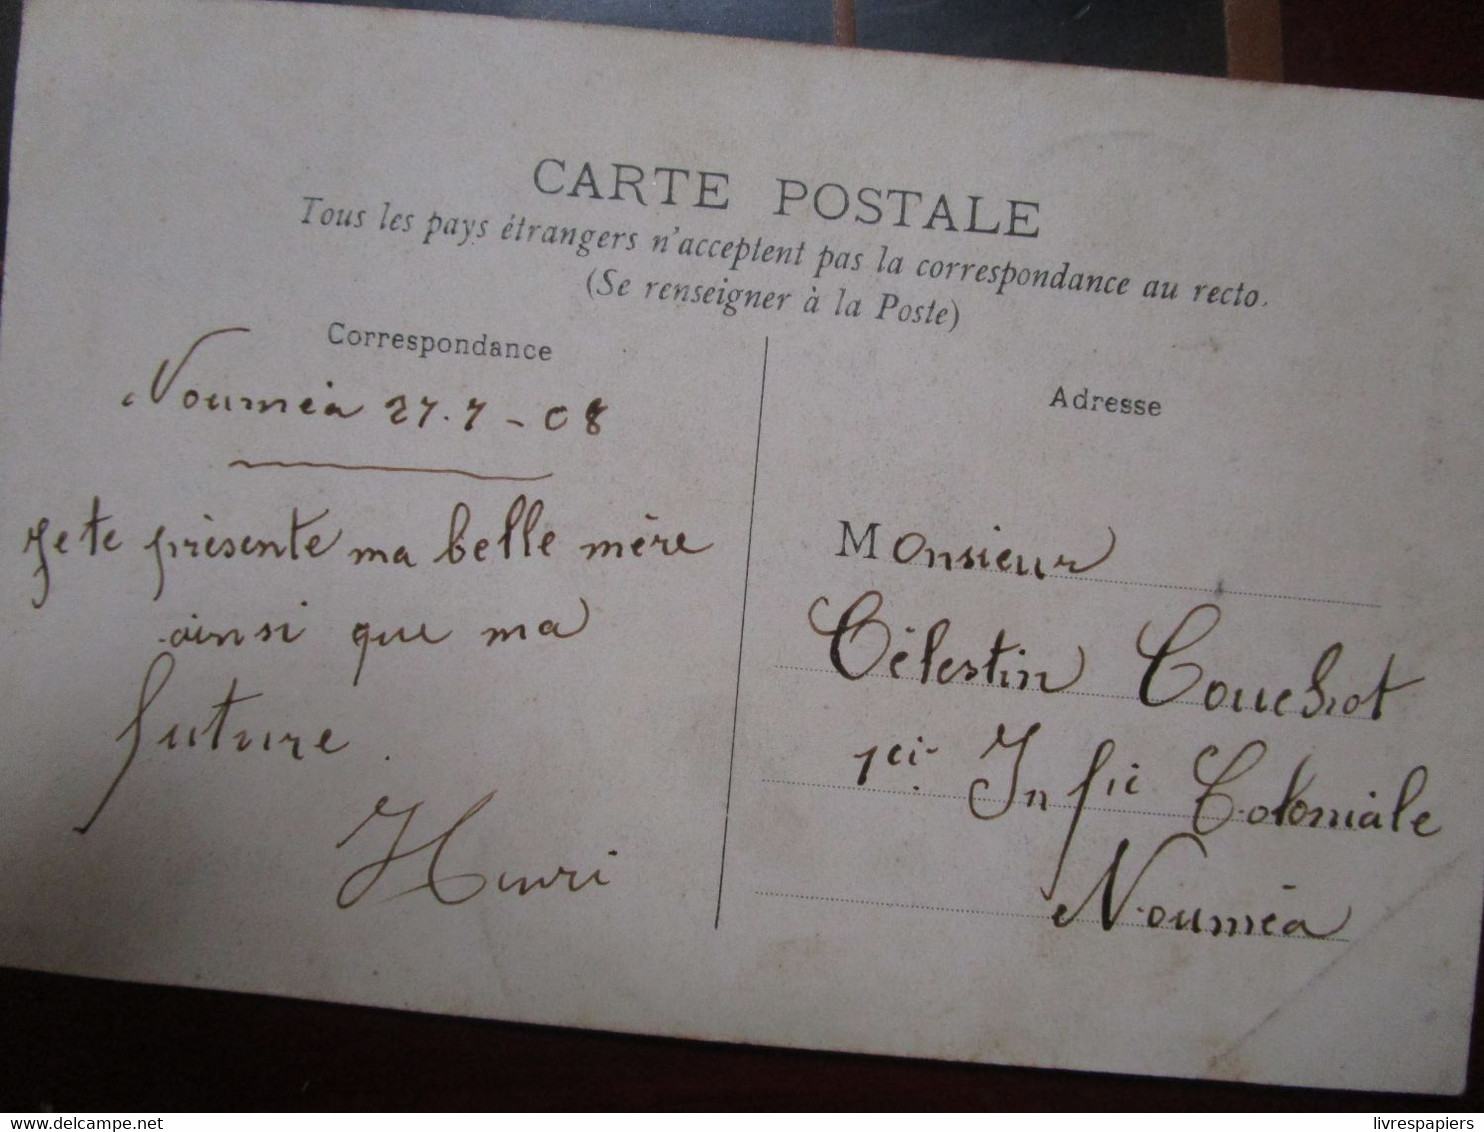 CARTE POSTALE
Tous les pays étrangers n'acceptent pas la correspondance au recto.
(Se renseigner à la Poste)
Correspondance
Nouméa 27.7-08
Je te présente ma belle mère
ainsi que ma
future.
Henri
Adresse
Monsieur
Célestin Couchot
1 cie Infie Coloniale
Nouméa
delcampe.net
livrespapiers